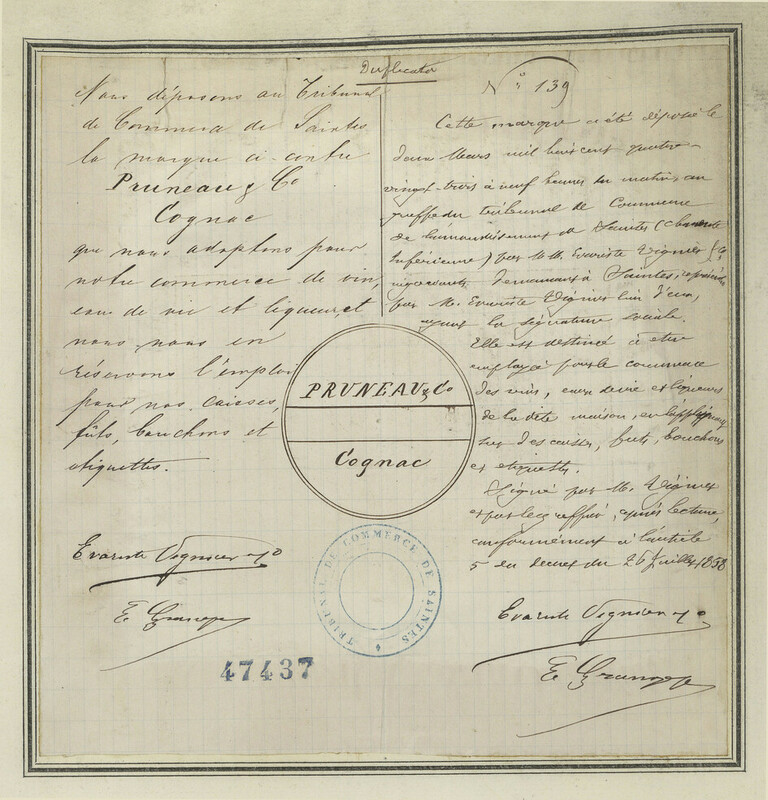 Duplicata
Nous déposons au Tribunal
de Commerce de Saintes
la marque ci contre
Pruneau & Co
Cognac
que nous adoptons pour
notre commerce de vin,
eau de vie et liqueur et
nous nous en
réservons l'emploi
pour nos caisses,
fûts, bouchons et
étiquettes.
Evariste Vignier & Co
N° 139
Cette marque a été déposée le
deux Mars mil huit cent quatre-
vingt-trois à neuf heures du matin, au
greffe du tribunal de Commerce
de l'arrondissement de Saintes (Charente
Inférieure) par M.M. Evariste Vignier & Co
négociants, demeurant à Saintes, représentés
par M. Evariste Vignier l'un d'eux,
ayant la signature sociale.
Elle est destinée à être
employée pour le commerce
des vins, eaux de vie et liqueurs
de la dite maison, en l'appliquant
sur des caisses, futs, bouchons
et étiquettes.
Signé par M. Vignier
et par le greffier, après lecture,
conformément à l'article
5 du decret du 26 Juillet 1858
Evariste Vignier & Co
PRUNEAU & Co
Cognac
TRIBUNAL DE COMMERCE DE SAINTES
47437